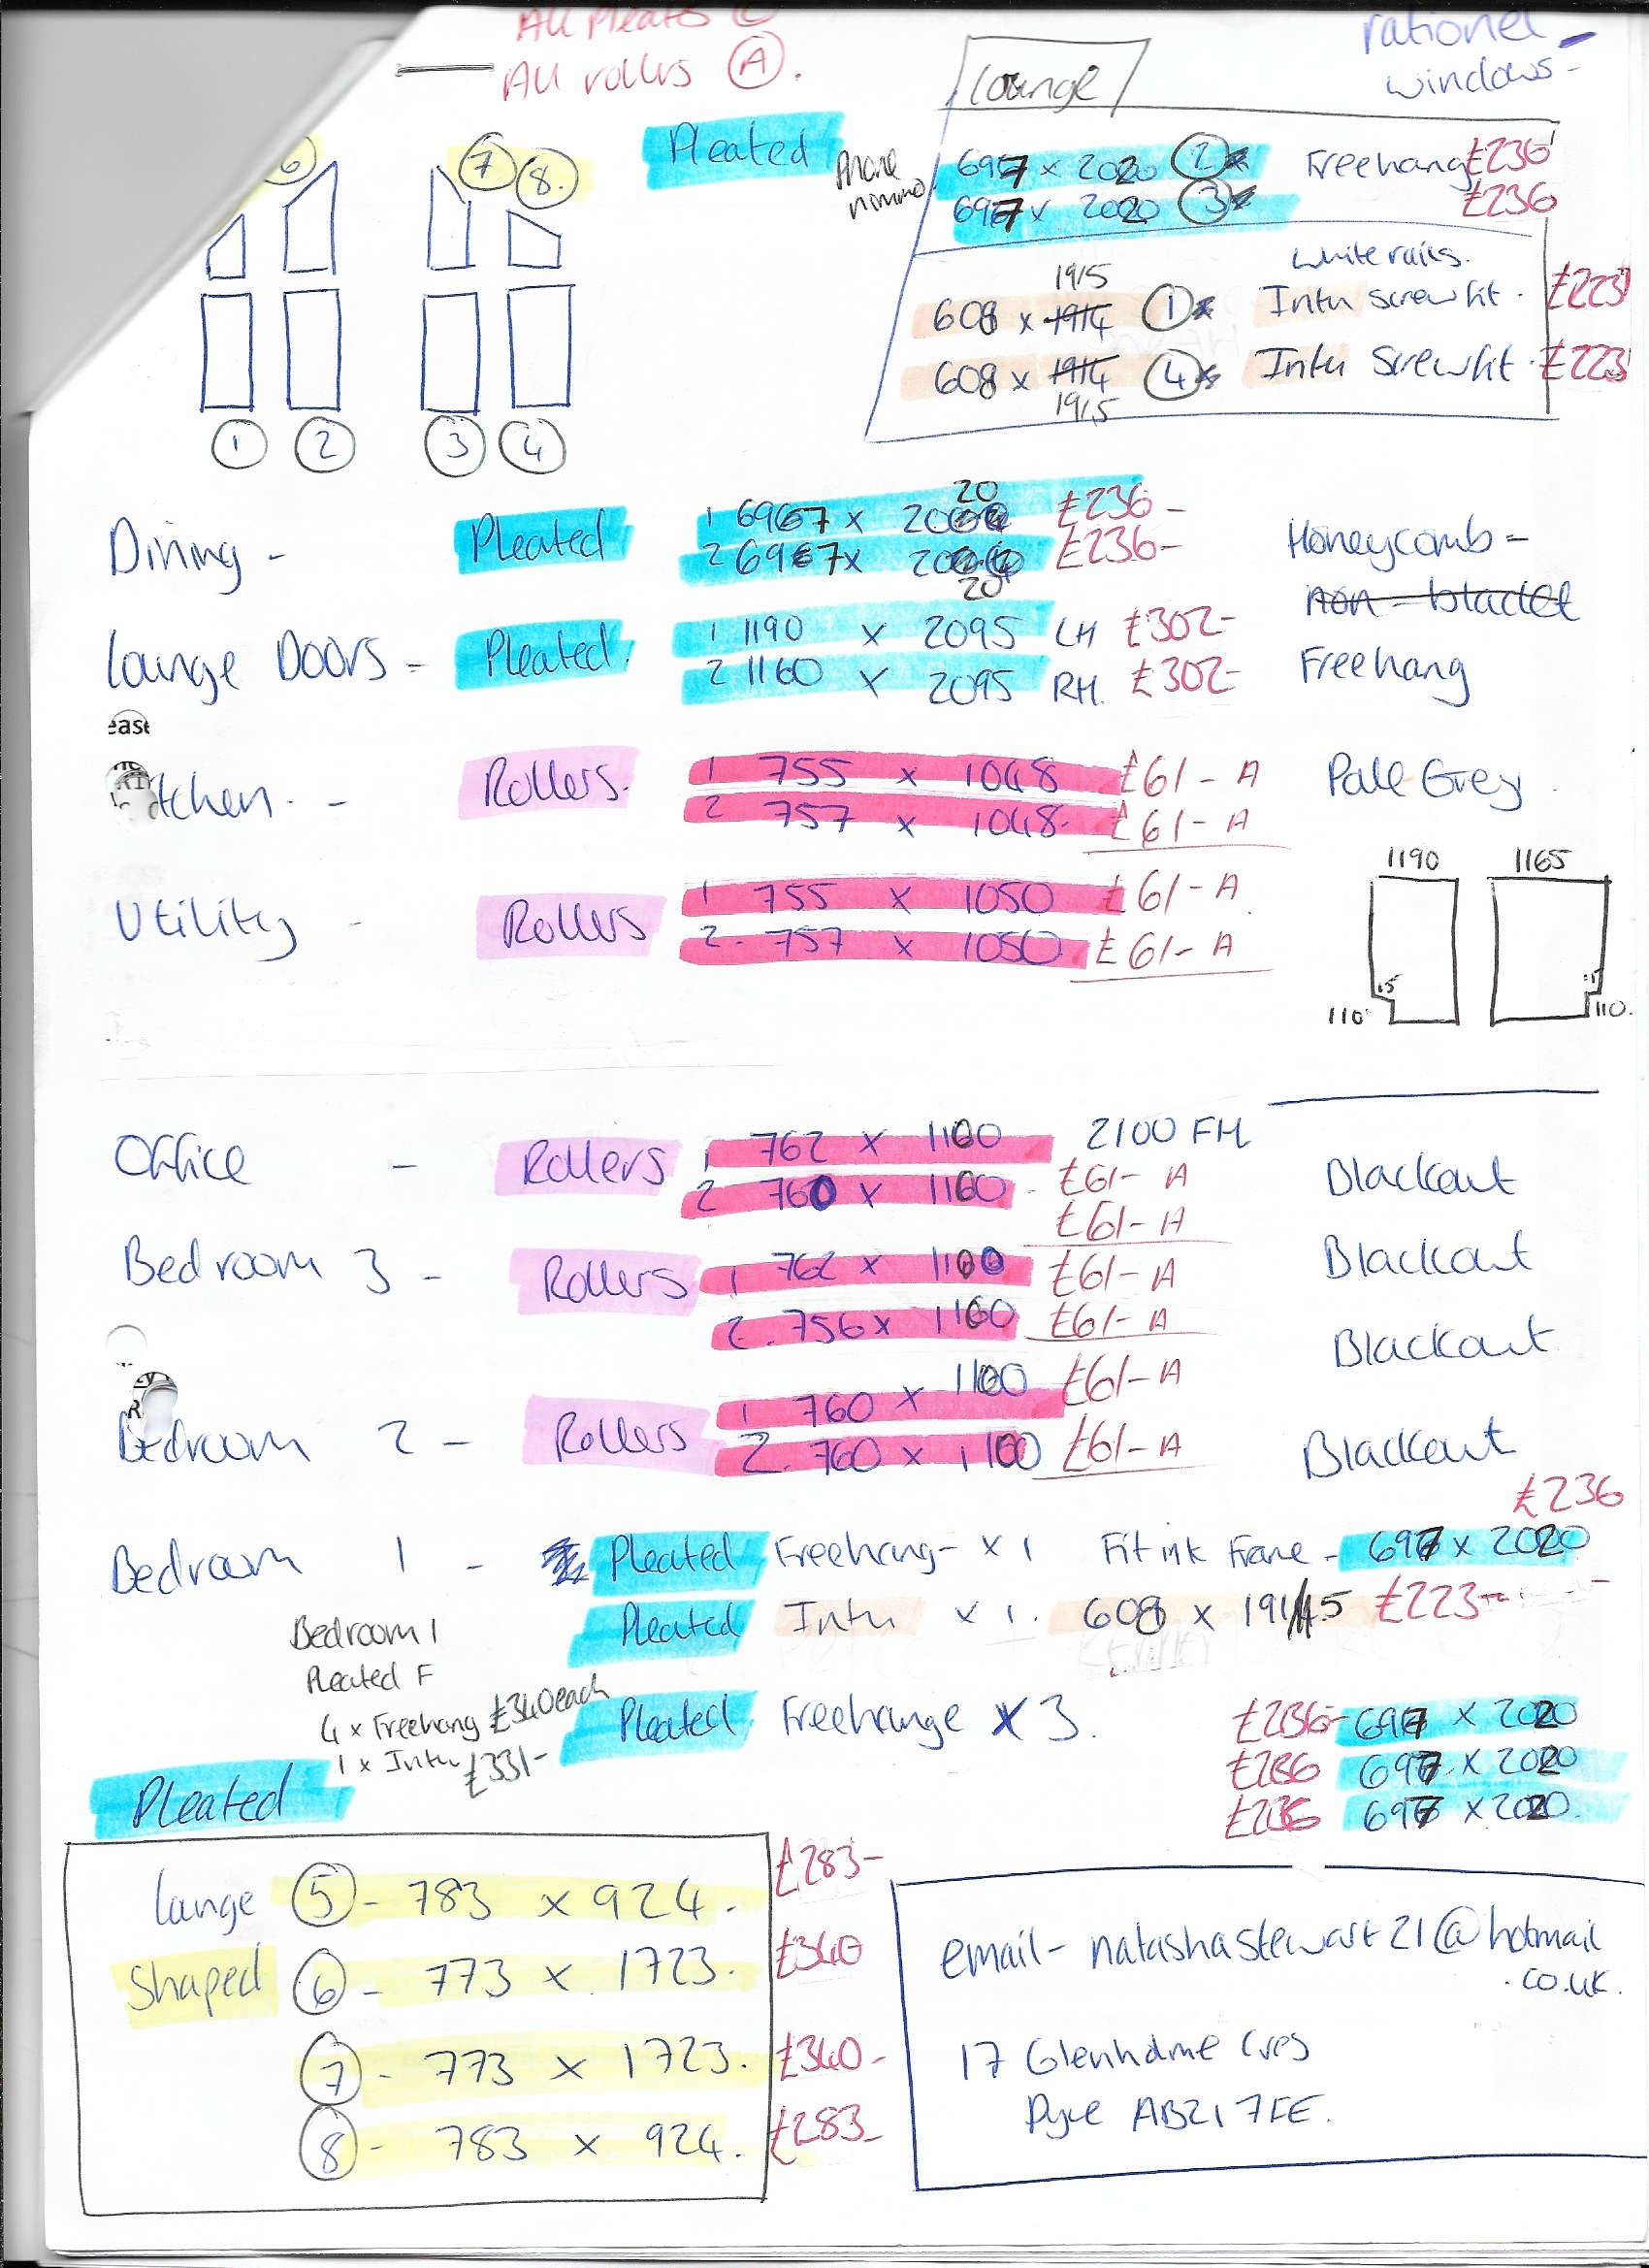 All Pleats C
All rollers A.
rationel
windows-
Lounge
6 7 8.
Pleated
697 x 2020 2 Freehang £236
697 x 2020 3 £236
White rails.
1915
608 x 1914 1 Intu Screwfit. £223
608 x 1914 4 Intu Screwfit. £223
1915
1 2 3 4
20
Dining - Pleated 1 697 x 200 £236- Honeycomb-
2 697 x 200 £236- non-blacket
20
Lounge Doors - Pleated. 1 1190 x 2095 LH £302- Freehang
2 1160 x 2095 RH. £302-
east
Kitchen. - Rollers. 1 755 x 1048 £61- A Pale Grey.
2 757 x 1048. £61- A
Utility - Rollers 1 755 x 1050 £61- A
2. 757 x 1050. £61- A
1190 1165
15 15
110 110.
Office - Rollers 1 762 x 1100 2100 FH Blackout
2 760 x 1100. £61- A
£61- A
Bedroom 3 - Rollers 1 762 x 1100 £61- A Blackout
2. 756 x 1100 £61- A Blackout
Bedroom 2 - Rollers 1 760 x 1100 £61- A
2. 760 x 1100 £61- A Blackout
£236
Bedroom 1 - Pleated Freehang- x 1 Fit ink Frame - 697 x 2020
Pleated Intu x 1. 608 x 1915 £223-
Bedroom 1
Pleated F
4 x Freehang £340each
1 x Intu £331-
Pleated Freehange x 3. £236- 697 x 2020
£236 697 x 2020
£236 697 x 2020.
Pleated
Lounge 5 - 783 x 924. £283-
Shaped 6 - 773 x 1723. £340
7 - 773 x 1723. £340-
8 - 783 x 924. £283-
email- natashastewart21@hotmail
.co.uk.
17 Glenhome Cres
Dyce AB21 7FE.